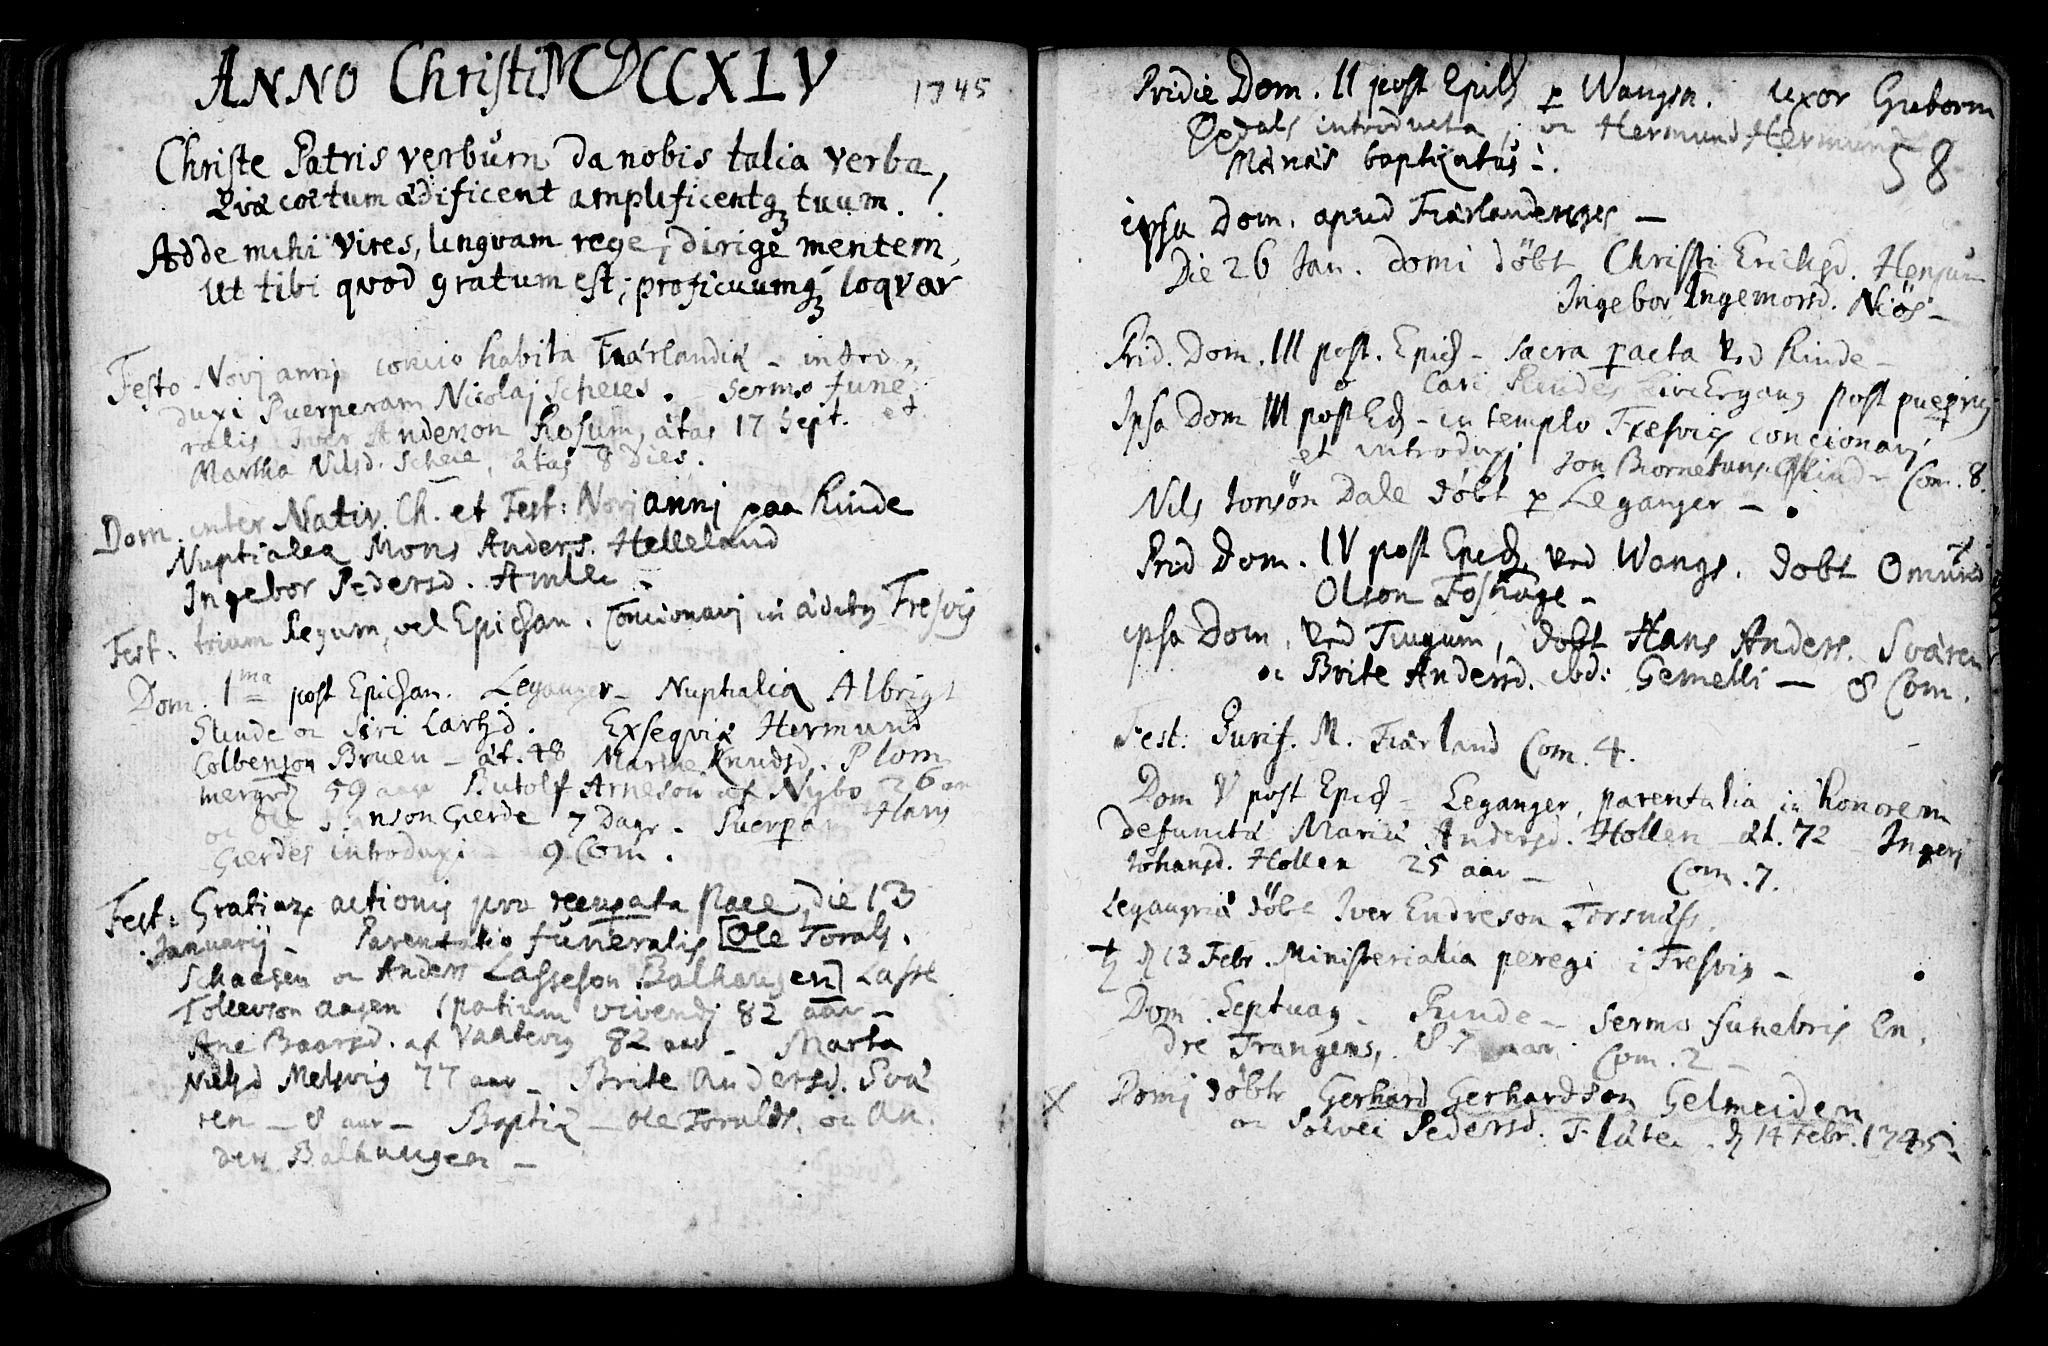 ANNO Christi MDCCXLV
1745
Christe Patris verbum da nobis talia verba,
Qvæ coetum ædificent amplificentq tuum.
Adde mihi vires, lingvam rege, dirige mentem,
Ut tibi qvod gratum est, proficuumq loqvar
Festo Novj annj concio habita Fiærlandiæ - intro
duxi Puerperam Nicolaj Scheies. Sermo fune
ralis Iver Anderson Rosum, ætas 17 Sept. et
Martha Nilsd. Scheie, ætas 8 dies.
Dom. inter Nativ. Ch. et Fest: Novj annj paa Rinde
Nuptialia Mons Anders. Helleland
Ingebor Pedersd. Amble -
Fest: trium Regum, vel Epiphan. Concionavj in ædibus Fresvig
Dom. 1ma post Epiphan. Leganger - Nuptialia Albrigt
Stunde oc Siri Larsd. Exseqviæ Hermund
Colbenson Bruen - æt. 48 Marthe Knudsd. Plom
mergrd 59 aar Butolf Arneson af Nybo 26 an
oc Ole nson Gierde 7 Dagr - Puerpar Hans
Gierdes introduxi - 9 Com.
Fest: Gratiar actionis pro recuperata Pace, die 13
Januarij - Parentatio funeralis [Ole Torals.
Schaasen oc Anders Lasseson Balhaugen] Lasse
Tollevson Aasen spatium vivendj 82 aar -
Ane Baarsd. af Vaatevig 82 aar - Marta
Nielsd Melsvig 77 aar - Brite Andersd. Svæ
ren - 8 aar - Baptiz - Ole Toralds. oc An.
ders Balhaugen -
Pridie Dom. II post Epiph p Wangsn. uxor Guttorm
Opdals introducta, oc Hermund Hermunds
58
Månæs baptizatus -.
ipsa Dom. apud Fiærlandenses -
Die 26 Jan. domi döbt Christi Erichsd. Hensum
Ingebor Ingemorsd. Niös -
Prid. Dom. III post. Epiph - sacra pacta ved Rinde -
Cari Rindes Kirkergang post puerp
Ipsa Dom III post Ep - in templo Fresvig concionavj
et introduxj Jon Biornetuns Qvind - Com. 8.
Nils Jonsön Dale döbt p Leganger -.
Prid Dom. IV post Epiph, ved Wangs. döbt Omund
Olson Foshage -
ipsa Dom, ved Tiugum, döbt Hans Anders. Sværen
oc Brite Andersd. ibd: Gemelli - 8 Com.
Fest: Purif. M. Fiærland Com. 4.
Dom V post Epiph - Leganger, parentalia in honorem
defunctæ Mariæ Andersd. Hollen æt. 72 - Ingerj
Johansd. Hollen 25 aar - Com. 7.
Legangriæ döbt Iver Endreson Torsnæss.
d 13 Febr. Ministerialia peregi i Fresvig -
Dom. Septuag - Rinde - Sermo funebris En.
dre Frangens, 87 aar. Com. 2 -
X Domj döbtr Gerhard Gerhardson Gelmeiden
oc Solvei Pedersd. Flåtei. d 14 Febr. 1745.